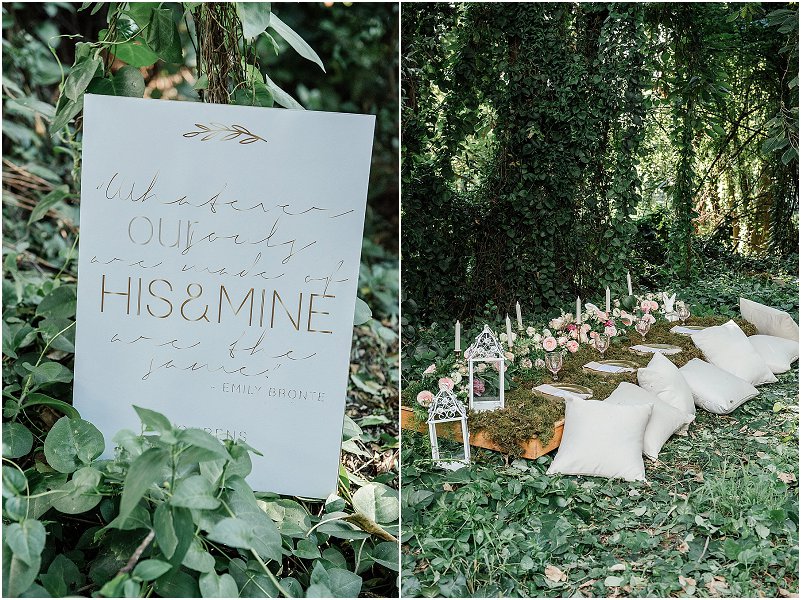 "Whatever
OUR souls
are made of
HIS&MINE
are the
same."
- EMILY BRONTE